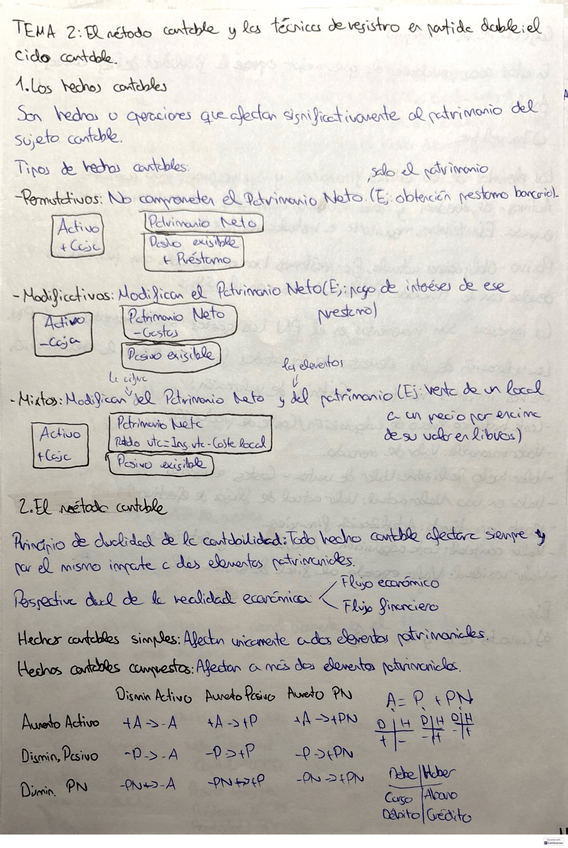 TEMA 2: El método contable y las técnicas de registro en partida doble: el
ciclo contable.
1. Los hechos contables
Son hechos u operaciones que afectan significativamente al patrimonio del
sujeto contable.
Tipos de hechos contables:
solo el patrimonio
- Permutativos: No comprometen el Patrimonio Neto. (Ej: obtención prestamo bancario).
Activo
+ Caja
Patrimonio Neto
Pasivo exisible
+ Préstamo
- Modificativos: Modifican el Patrimonio Neto (Ej: pago de intereses de ese
prestamo)
Activo
- Caja
Patrimonio Neto
- Gastos
Pasivo exisible
la cifra
los elementos
- Mixtos: Modifican del Patrimonio Neto y del patrimonio (Ej: venta de un local
a un precio por encima
de su valor en libros)
Activo
+ Caja
Patrimonio Neto
Rdido vta = Ing. vta - Coste local
Pasivo exisible
2. El método contable
Principio de dualidad de la contabilidad: Todo hecho contable afectara siempre y
por el mismo importe a dos elementos patrimoniales.
Perspectiva dual de la realidad económica
Flujo económico
Flujo financiero
Hechos contables simples: Afectan unicamente a dos elementos patrimoniales.
Hechos contables compuestos: Afectan a más dos elementos patrimoniales.
Dismin Activo Aumento Pasivo Aumento PN
Aumento Activo +A -> -A +A -> +P +A -> +PN
Dismin, Pasivo -P -> -A -P -> +P -P -> +PN
Dimin. PN -PN -> -A -PN -> +P -PN -> +PN
A = P + PN
D | H D | H D | H
+ | - - | + - | +
Debe | Haber
Cargo | Abono
Débito | Crédito